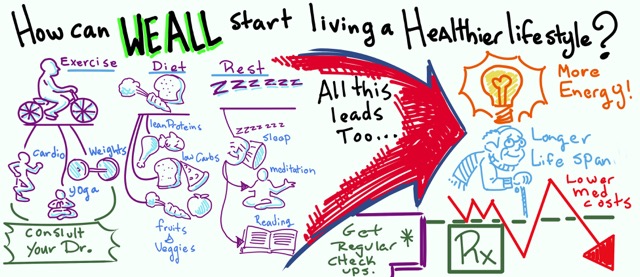 How can WE ALL start living a Healthier lifestyle?
Exercise
cardio
Weights
yoga
Consult
Your Dr.
Diet
lean Proteins
low Carbs
fruits
&
Veggies
Rest
ZZZZZZZ
ZZZZZZZ
sloop
meditation
Reading
All this
leads
Too...
Get
Regular
check
ups.
*
More
Energy!
Longer
Life span
Lower
med
costs
Rx